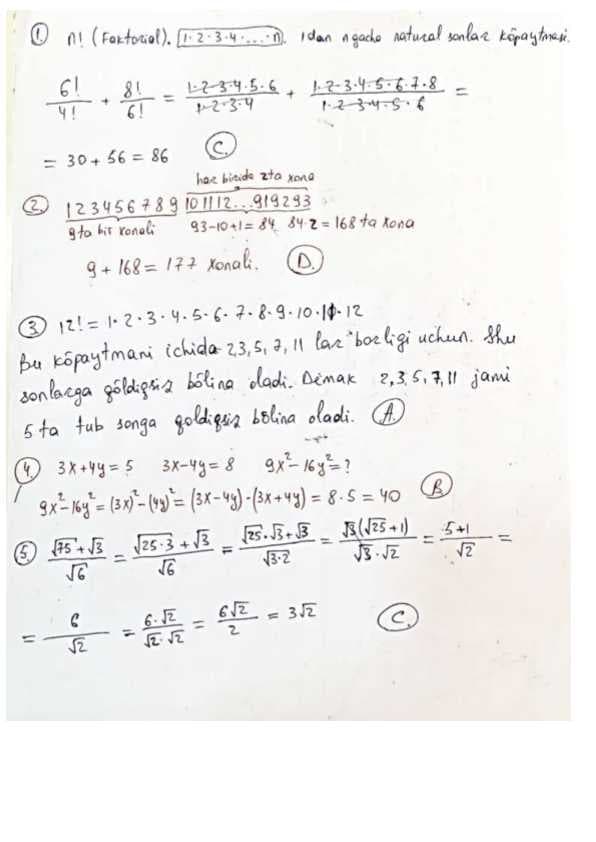 1. n! (Faktorial). 1·2·3·4·...·n. 1dan ngacha natural sonlar köpaytmasi.
6!/4! + 8!/6! = 1·2·3·4·5·6/1·2·3·4 + 1·2·3·4·5·6·7·8/1·2·3·4·5·6 =
= 30 + 56 = 86 C.
har birida 2ta xona
2. 1 2 3 4 5 6 7 8 9 10 11 12...91 92 93
9ta bir xonali 93-10+1=84 84·2=168 ta xona
9 + 168 = 177 xonali. D.
3. 12! = 1·2·3·4·5·6·7·8·9·10·11·12
Bu köpaytmani ichida 2,3,5,7,11 lar borligi uchun. Shu
sonlarga qöldiqsiz bölina oladi. Demak 2,3,5,7,11 jami
5 ta tub songa qoldiqsiz bölina oladi. A.
4. 3x+4y=5 3x-4y=8 9x²-16y²=?
9x²-16y²=(3x)²-(4y)²=(3x-4y)·(3x+4y)=8·5=40 B
5. √75+√3/√6 = √25·3+√3/√6 = √25·√3+√3/√3·2 = √3(√25+1)/√3·√2 = 5+1/√2 =
= 6/√2 = 6·√2/√2·√2 = 6√2/2 = 3√2 C.